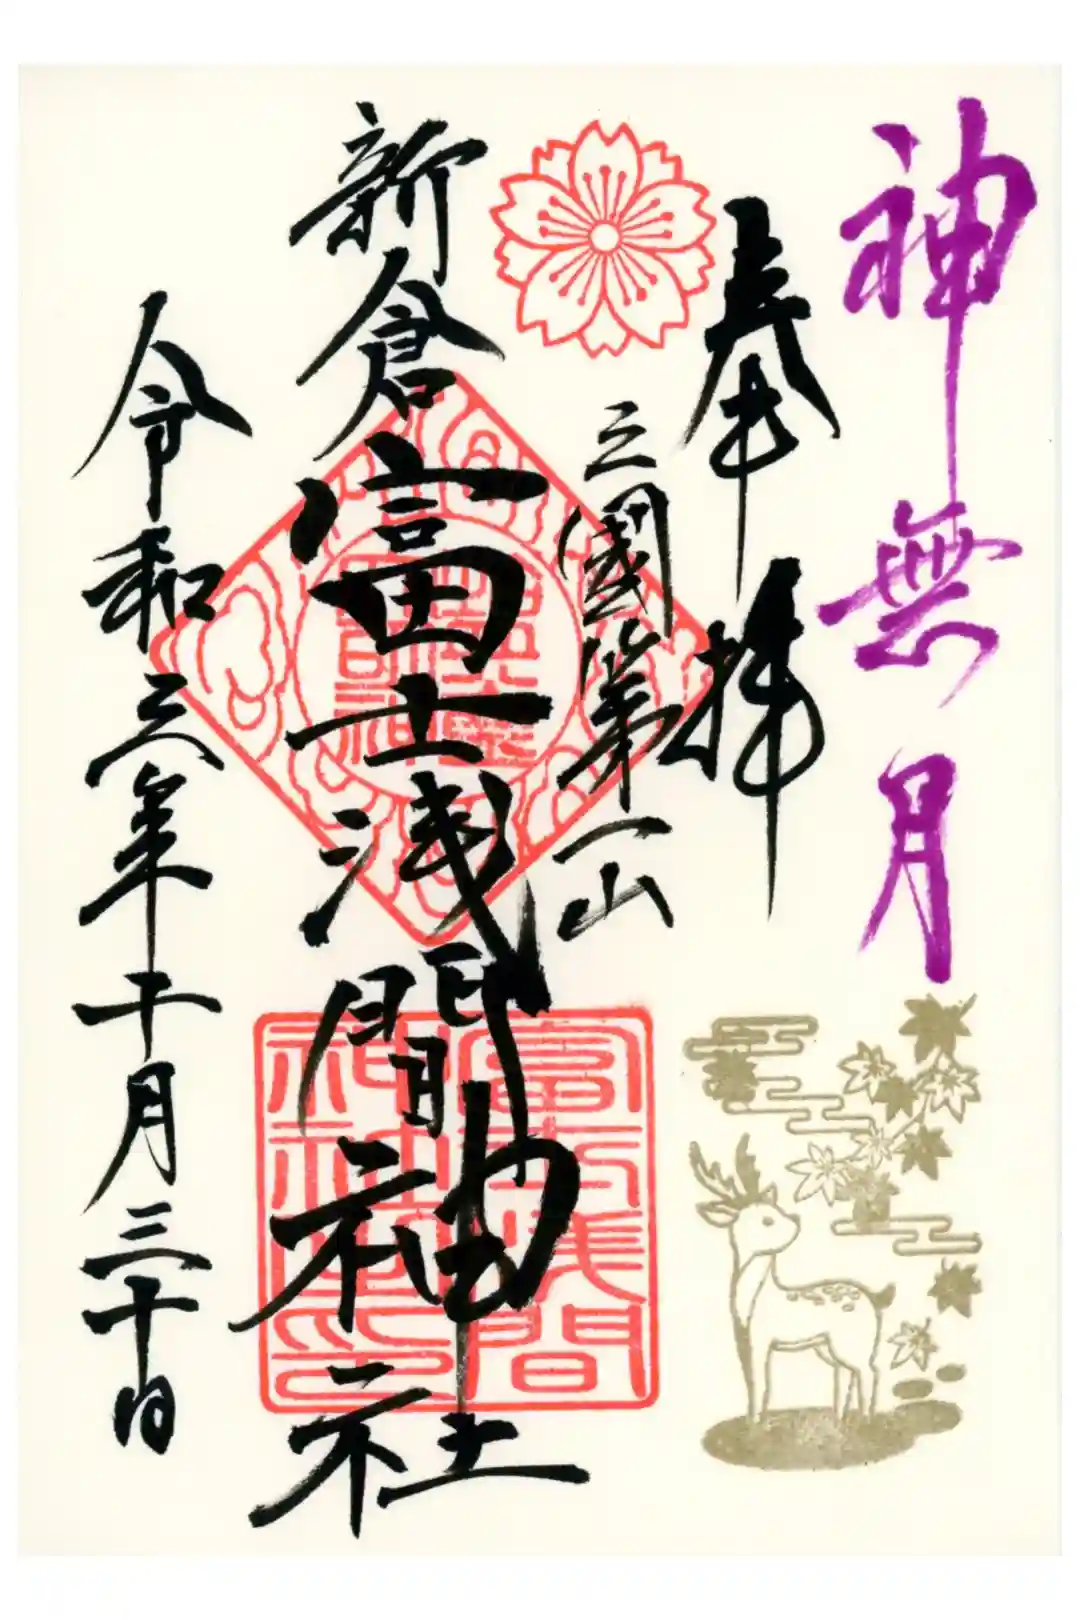 神無月
奉拝
三國第一山
新倉富士浅間神社
令和三年十月三十日
冨士浅間
神社之印